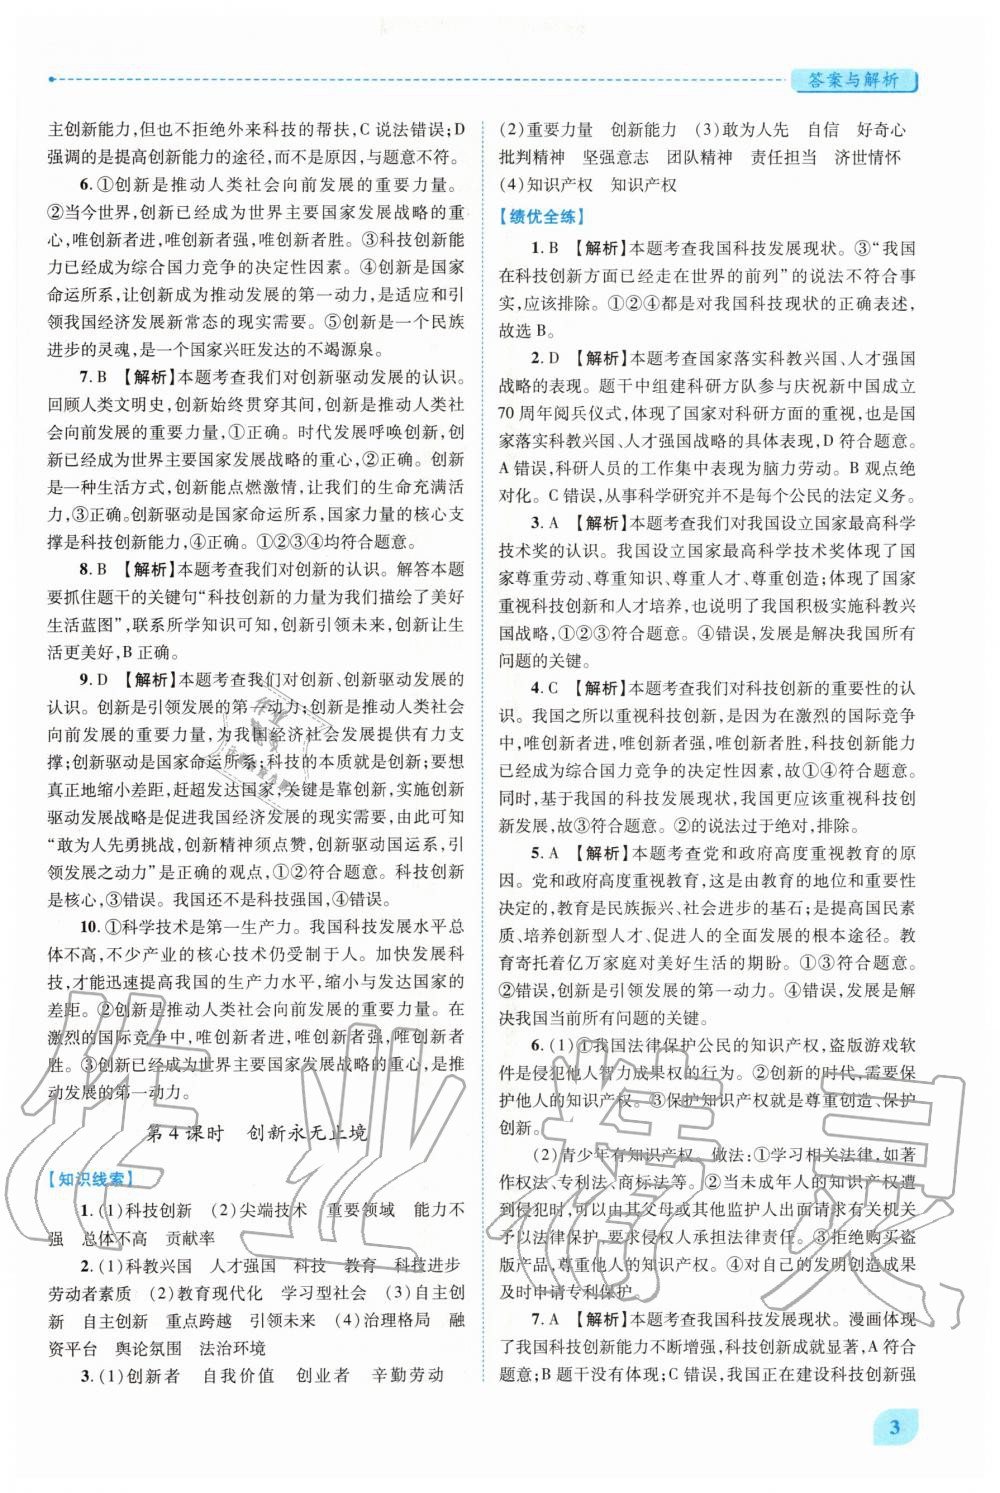 答案与解析
主创新能力,但也不拒绝外来科技的帮扶,C说法错误;D
强调的是提高创新能力的途径,而不是原因,与题意不符。
6.①创新是推动人类社会向前发展的重要力量。
②当今世界,创新已经成为世界主要国家发展战略的重
心,唯创新者进,唯创新者强,唯创新者胜。③科技创新能
力已经成为综合国力竞争的决定性因素。④创新是国家
命运所系,让创新成为推动发展的第一动力,是适应和引
领我国经济发展新常态的现实需要。⑤创新是一个民族
进步的灵魂,是一个国家兴旺发达的不竭源泉。
7. B 【解析】本题考查我们对创新驱动发展的认识。
回顾人类文明史,创新始终贯穿其间,创新是推动人类社
会向前发展的重要力量,①正确。时代发展呼唤创新,创
新已经成为世界主要国家发展战略的重心,②正确。创新
是一种生活方式,创新能点燃激情,让我们的生命充满活
力,③正确。创新驱动是国家命运所系,国家力量的核心支
撑是科技创新能力,④正确。①②③④均符合题意。
8. B 【解析】本题考查我们对创新的认识。解答本题
要抓住题干的关键句“科技创新的力量为我们描绘了美好
生活蓝图”,联系所学知识可知,创新引领未来,创新让生
活更美好,B正确。
9. D 【解析】本题考查我们对创新、创新驱动发展的
认识。创新是引领发展的第一动力;创新是推动人类社会
向前发展的重要力量,为我国经济社会发展提供有力支
撑;创新驱动是国家命运所系;科技的本质就是创新;要想
真正地缩小差距,赶超发达国家,关键是靠创新,实施创新
驱动发展战略是促进我国经济发展的现实需要,由此可知
“敢为人先勇挑战,创新精神须点赞,创新驱动国运系,引
领发展之动力”是正确的观点,①②符合题意。科技创新
是核心,③错误。我国还不是科技强国,④错误。
10.①科学技术是第一生产力。我国科技发展水平总
体不高,不少产业的核心技术仍受制于人。加快发展科
技,才能迅速提高我国的生产力水平,缩小与发达国家的
差距。②创新是推动人类社会向前发展的重要力量。在
激烈的国际竞争中,唯创新者进,唯创新者强,唯创新者
胜。③创新已经成为世界主要国家发展战略的重心,是推
动发展的第一动力。
第4课时 创新永无止境
【知识线索】
1.(1)科技创新 (2)尖端技术 重要领域 能力不
强 总体不高 贡献率
2.(1)科教兴国 人才强国 科技 教育 科技进步
劳动者素质 (2)教育现代化 学习型社会 (3)自主创
新 自主创新 重点跨越 引领未来 (4)治理格局 融
资平台 舆论氛围 法治环境
3.(1)创新者 自我价值 创业者 辛勤劳动
(2)重要力量 创新能力 (3)敢为人先 自信 好奇心
批判精神 坚强意志 团队精神 责任担当 济世情怀
(4)知识产权 知识产权
【绩优全练】
1. B 【解析】本题考查我国科技发展现状。③“我国
在科技创新方面已经走在世界的前列”的说法不符合事
实,应该排除。①②④都是对我国科技现状的正确表述,
故选B。
2. D 【解析】本题考查国家落实科教兴国、人才强国
战略的表现。题干中组建科研方队参与庆祝新中国成立
70周年阅兵仪式,体现了国家对科研方面的重视,也是国
家落实科教兴国、人才强国战略的具体表现,D符合题意。
A错误,科研人员的工作集中表现为脑力劳动。B观点绝
对化。C错误,从事科学研究并不是每个公民的法定义务。
3. A 【解析】本题考查我们对我国设立国家最高科学
技术奖的认识。我国设立国家最高科学技术奖体现了国
家尊重劳动、尊重知识、尊重人才、尊重创造;体现了国家
重视科技创新和人才培养,也说明了我国积极实施科教兴
国战略,①②③符合题意。④错误,发展是解决我国所有
问题的关键。
4. C 【解析】本题考查我们对科技创新的重要性的认
识。我国之所以重视科技创新,是因为在激烈的国际竞争
中,唯创新者进,唯创新者强,唯创新者胜,科技创新能力
已经成为综合国力竞争的决定性因素,故①④符合题意。
同时,基于我国的科技发展现状,我国更应该重视科技创
新发展,故③符合题意。②的说法过于绝对,排除。
5. A 【解析】本题考查党和政府高度重视教育的原
因。党和政府高度重视教育,这是由教育的地位和重要性
决定的,教育是民族振兴、社会进步的基石;是提高国民素
质、培养创新型人才、促进人的全面发展的根本途径。教
育寄托着亿万家庭对美好生活的期盼。①③符合题意。
②错误,创新是引领发展的第一动力。④错误,发展是解
决我国当前所有问题的关键。
6.(1)①我国法律保护公民的知识产权,盗版游戏软
件是侵犯他人智力成果权的行为。②创新的时代,需要保
护他人的知识产权。③保护知识产权就是尊重创造、保护
创新。
(2)青少年有知识产权。做法:①学习相关法律,如著
作权法、专利法、商标法等。②当未成年人的知识产权遭
到侵犯时,可以由其父母或其他监护人出面请求有关机关
予以法律保护,要求侵权人承担法律责任。③拒绝购买盗
版产品,尊重他人的知识产权。④对自己的发明创造成果
及时申请专利保护。
7. A 【解析】本题考查我国科技发展现状。漫画体现
了我国科技创新能力不断增强,科技创新硕果累累,A符合
题意;B题干没有体现;C错误,我国正在建设科技创新强
3
作业精灵